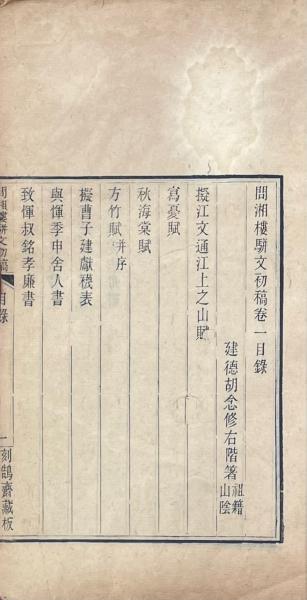 問湘樓駢文初稿卷一目錄
建德胡念修右階箸 祖籍山陰
擬江文通江上之山賦
寫憂賦
秋海棠賦
方竹賦 并序
擬曹子建獻襪表
與惲季申舍人書
致惲叔銘孝廉書
問湘樓駢文初稿 目錄 一 刻鵠齋藏板